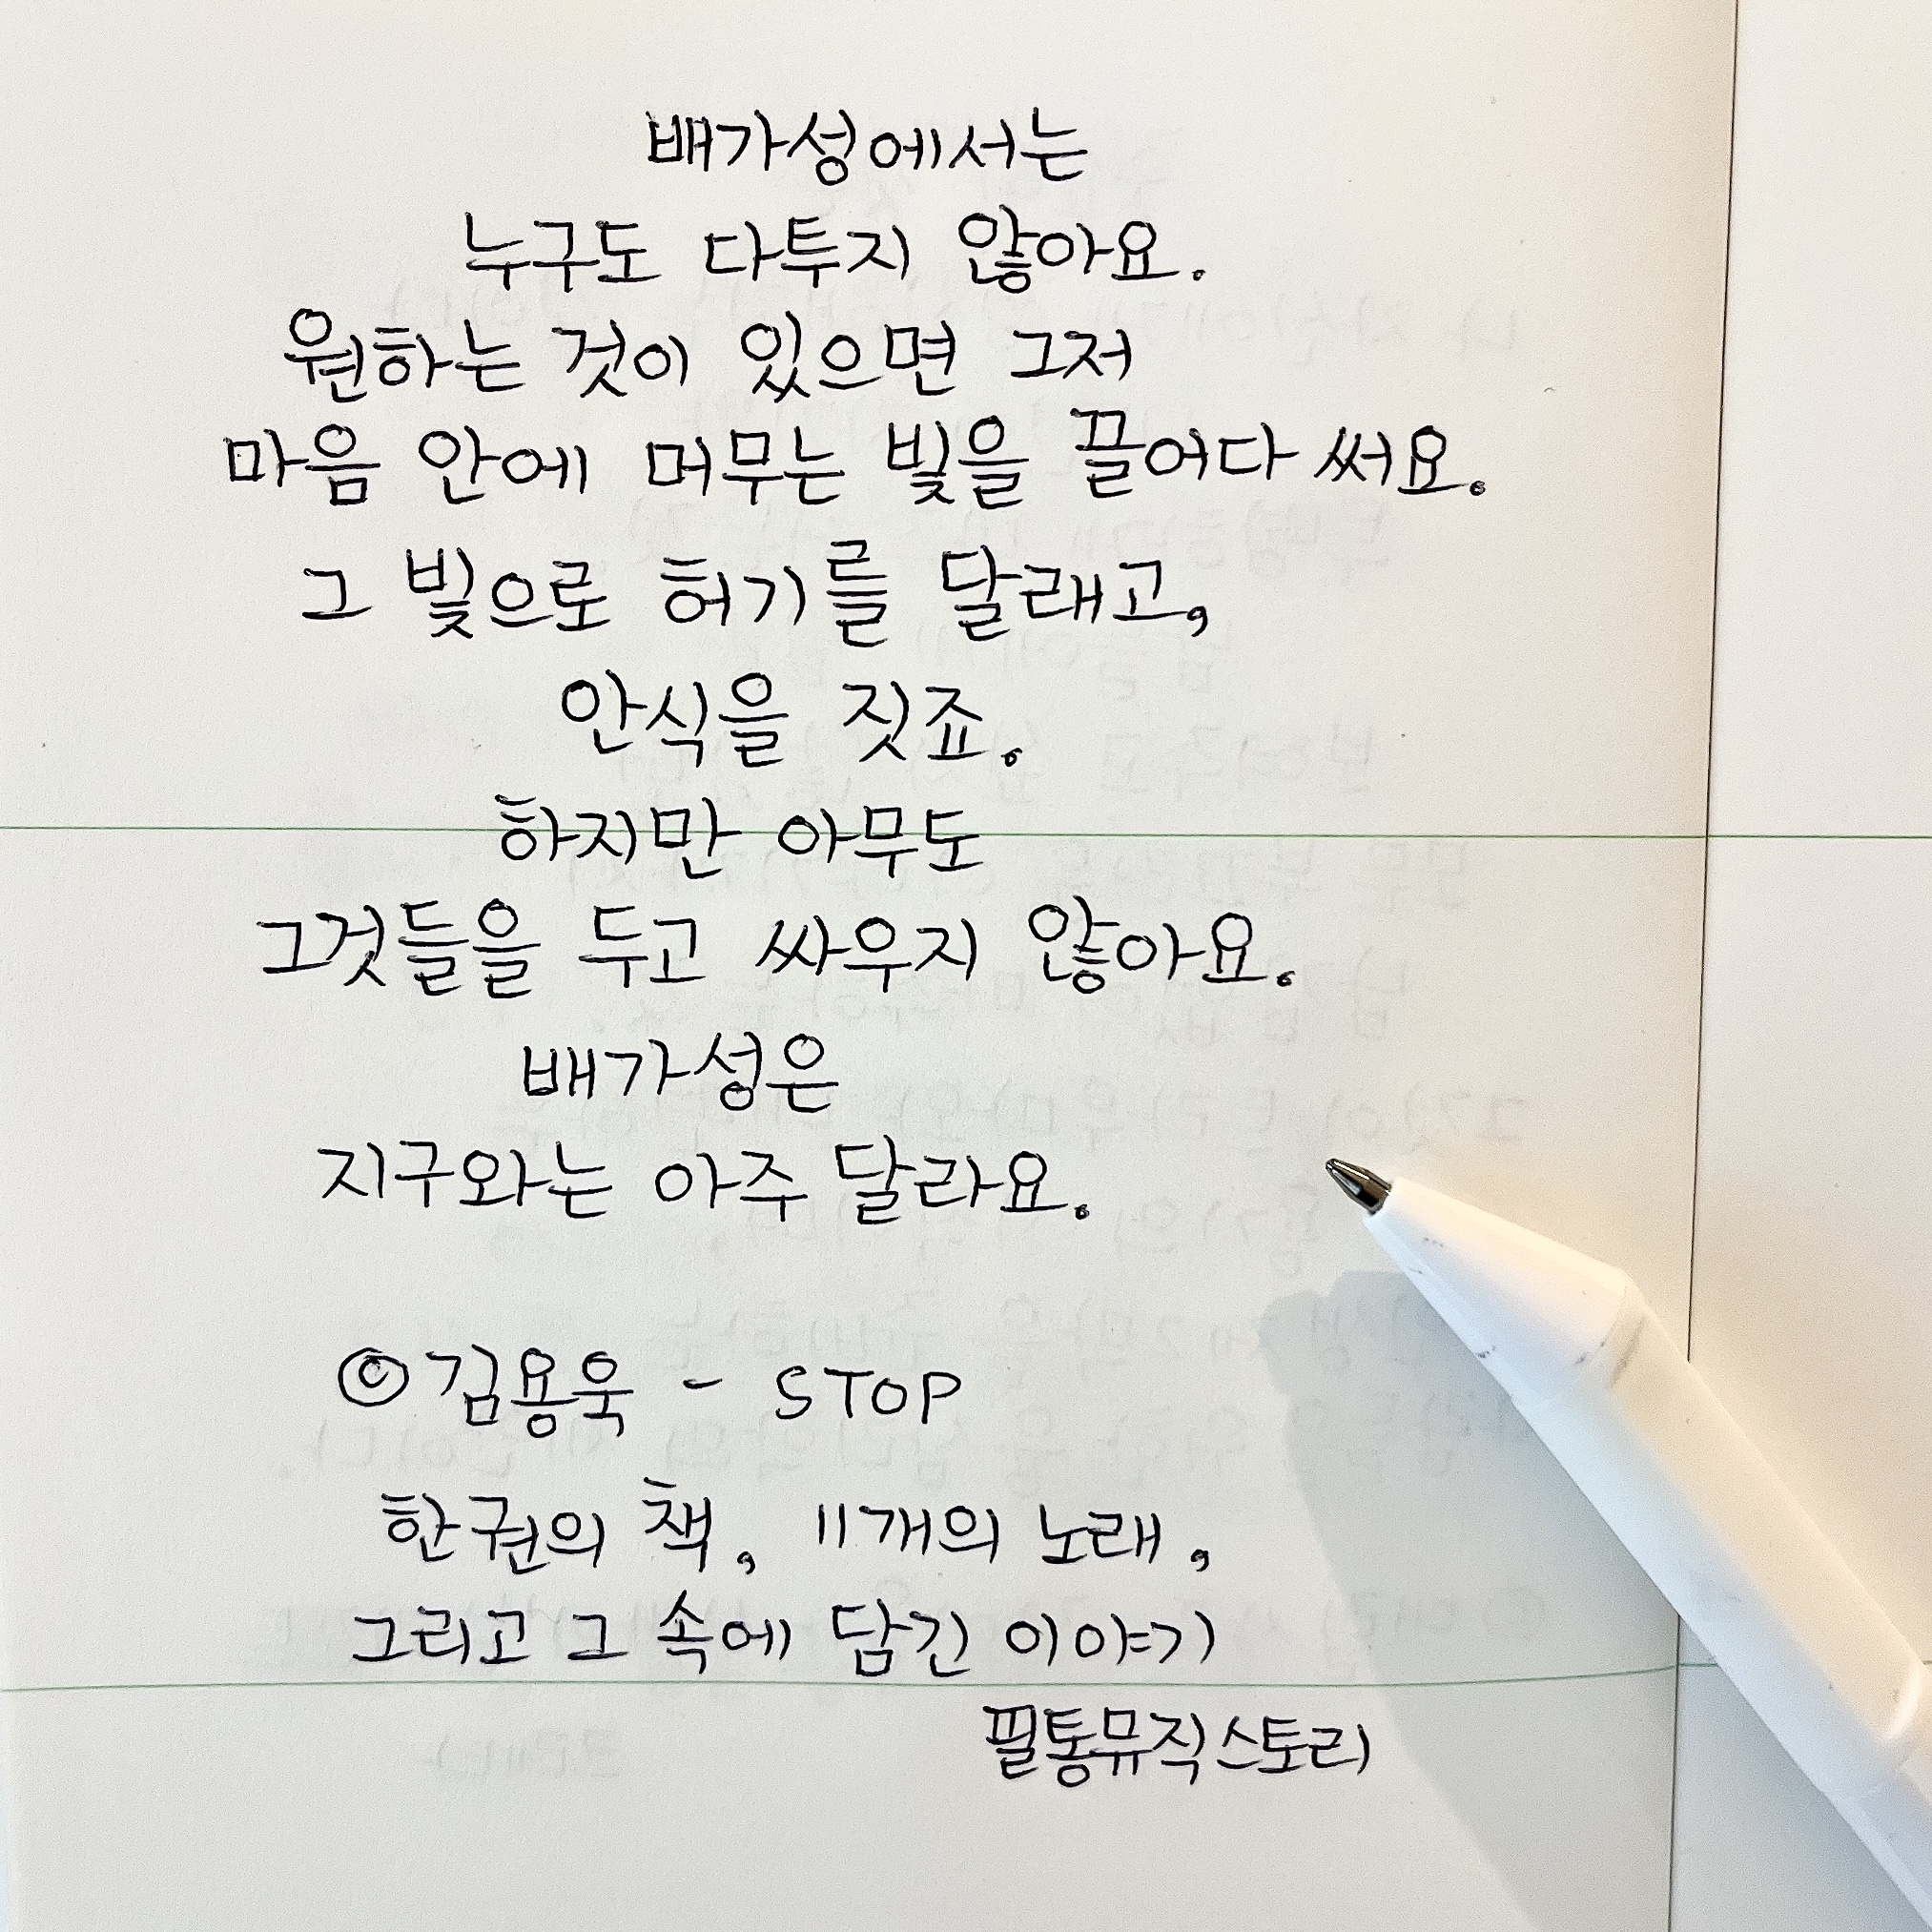 배가성에서는
누구도 다투지 않아요.
원하는 것이 있으면 그저
마음 안에 머무는 빛을 끌어다 써요.
그 빛으로 허기를 달래고,
안식을 짓죠.
하지만 아무도
그것들을 두고 싸우지 않아요.
배가성은
지구와는 아주 달라요.
◎ 김용욱 - STOP
한권의 책, 11개의 노래,
그리고 그 속에 담긴 이야기
필통뮤직스토리